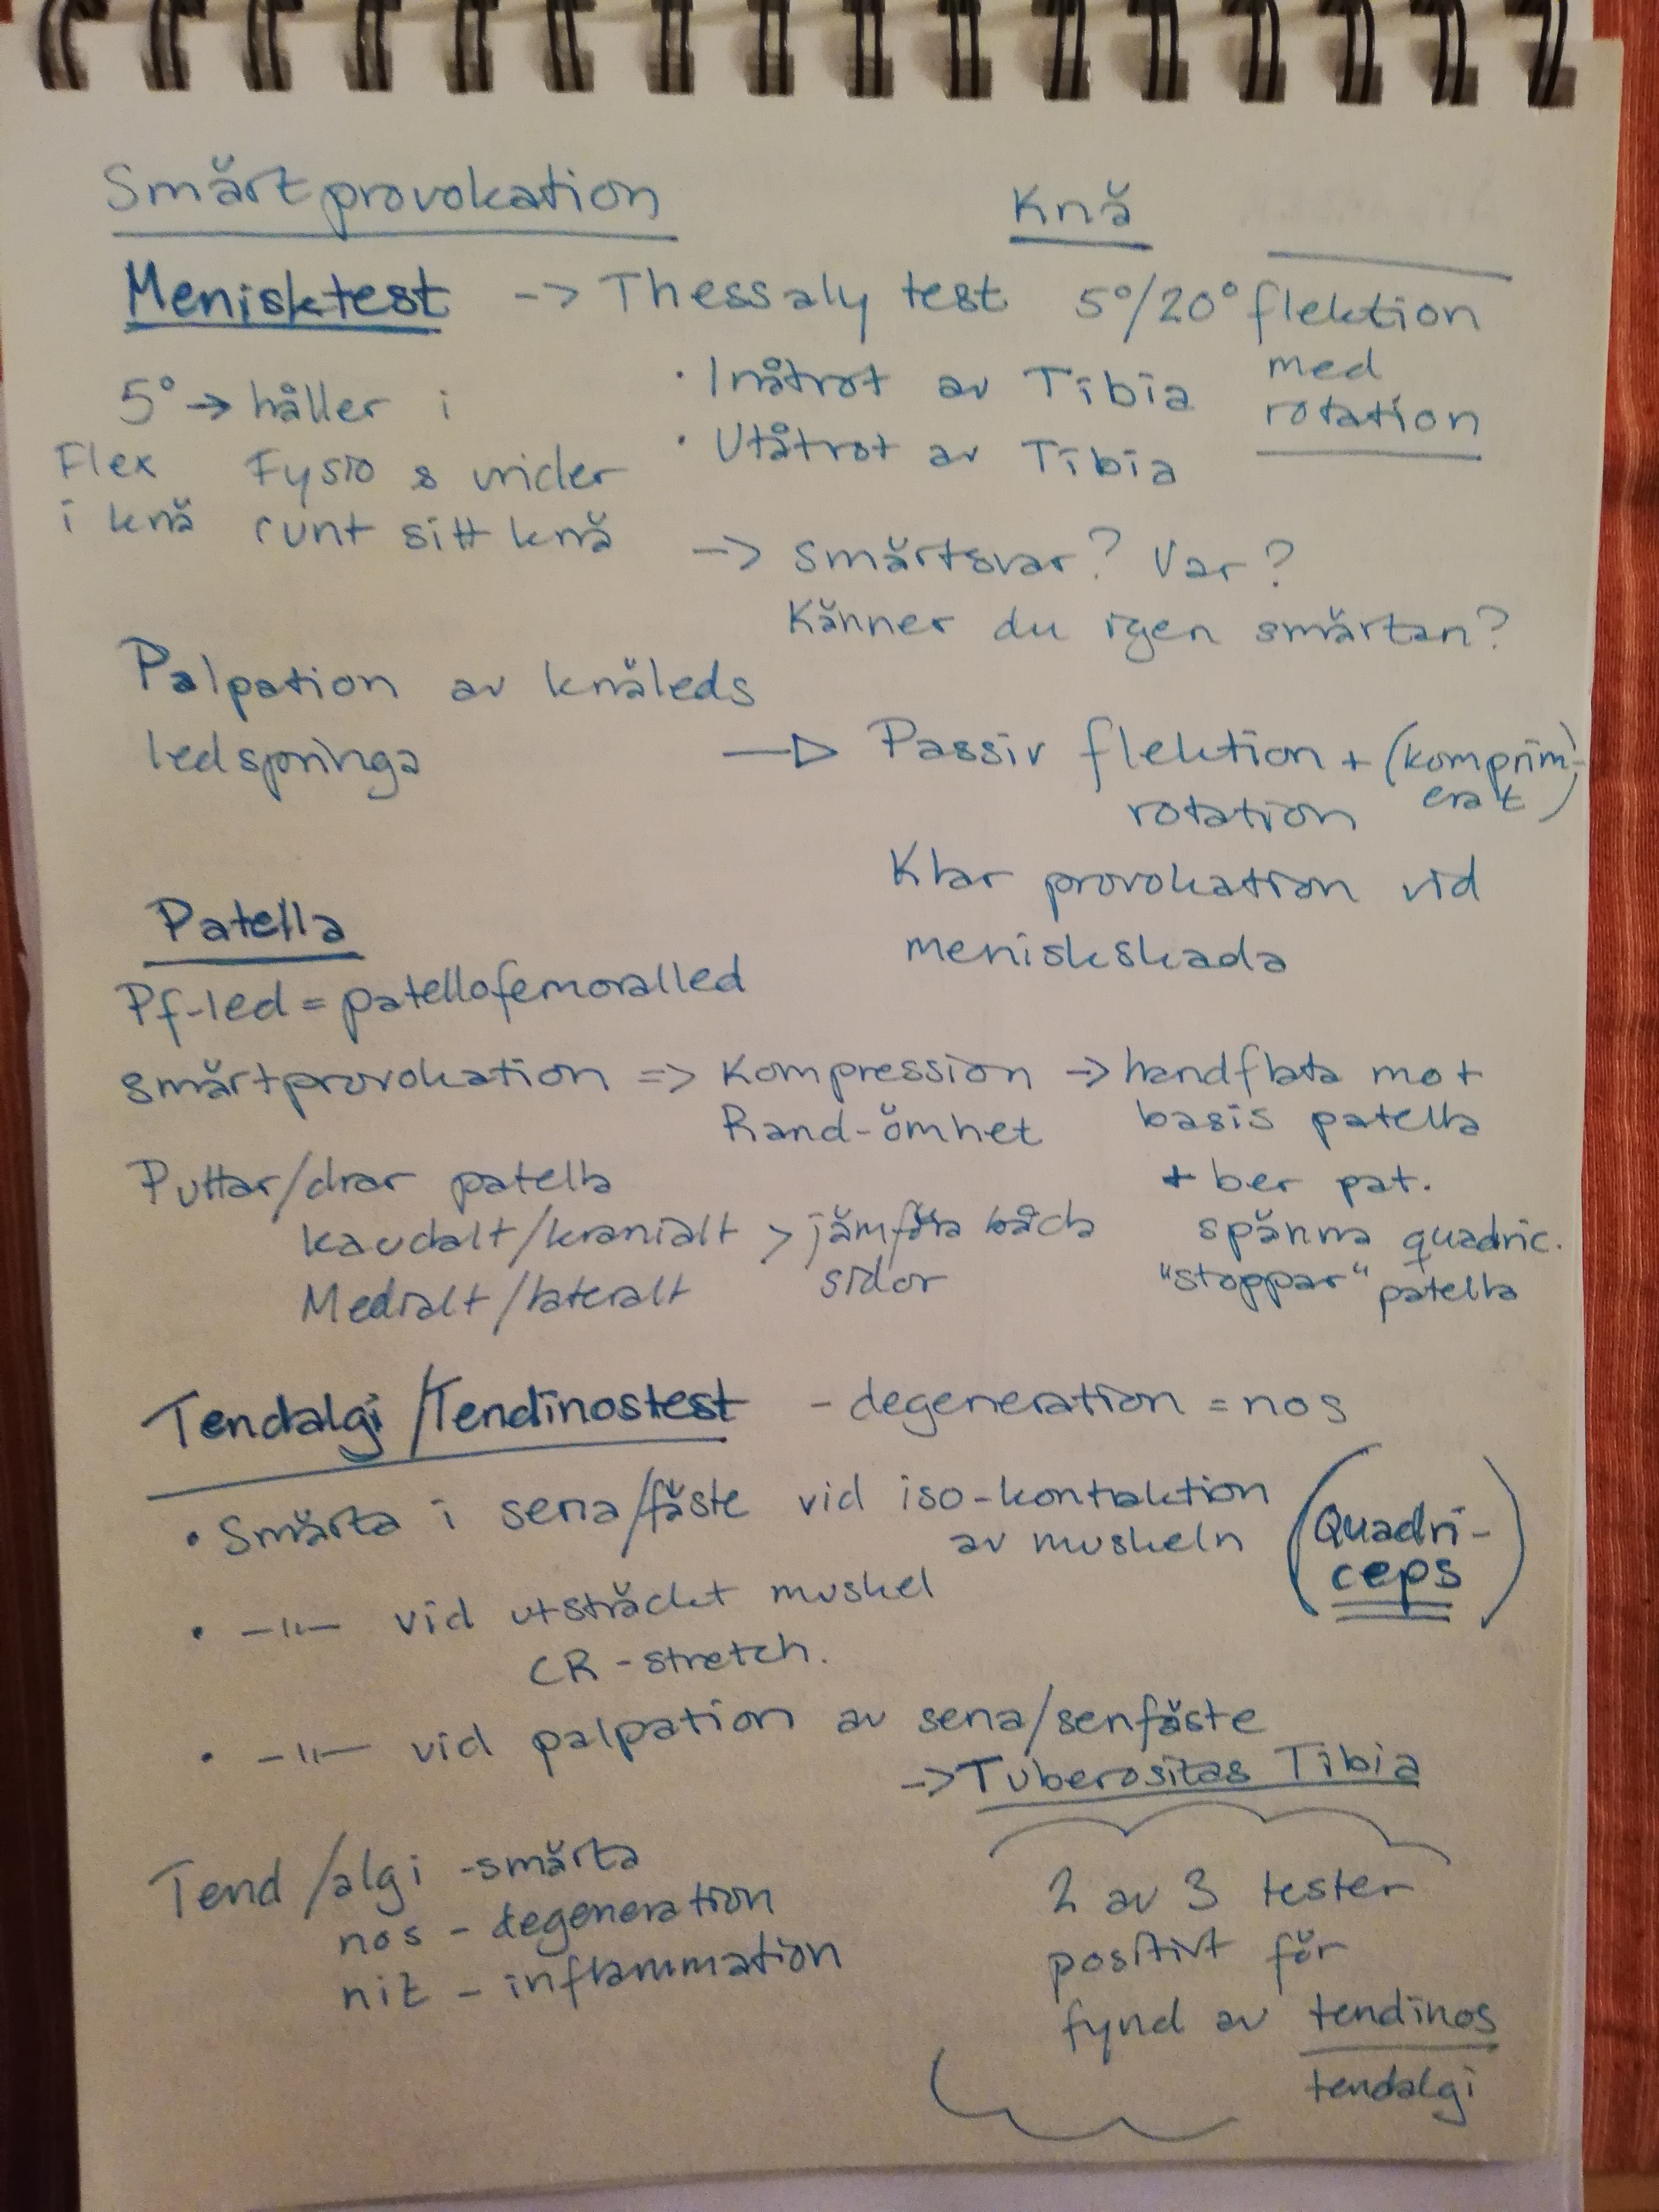 Smärtprovokation
Knä
Menisktest -> Thessaly test 5°/20° flektion
med
rotation
• Inåtrot av Tibia
• Utåtrot av Tibia
5° -> håller i
Flex Fysio & vrider
i knä runt sitt knä
-> smärtsvar? Var?
Känner du igen smärtan?
Palpation av knäleds
ledspringa
—▷ Passiv flektion + (komprim-
erat)
rotation
Klar provokation vid
meniskskada
Patella
Pf-led = patellofemoralled
smärtprovokation => Kompression -> handflata mot
Rand-ömhet
basis patella
+ ber pat.
spänna quadric.
"stoppar" patella
Puttar/drar patella
kaudalt/kranialt > jämföra båda
Medialt/lateralt
sidor
Tendalgi/Tendinostest - degeneration = nos
• Smärta i sena/fäste vid iso-kontraktion
av muskeln
(Quadri-
ceps)
• -"- vid utsträckt muskel
CR-stretch.
• -"- vid palpation av sena/senfäste
-> Tuberositas Tibia
Tend/algi -smärta
nos - degeneration
nit - inflammation
2 av 3 tester
positivt för
fynd av tendinos
tendalgi